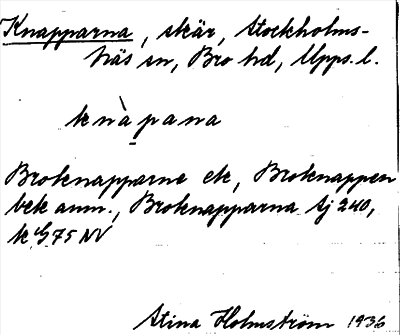 Knapparna, skär, Stockholms-
Näs sn, Bro hd, Upps. l.
knàpana
Broknapparne ek, Broknappen
bek anm., Broknapparna Sj 240,
k G 75 NV
Stina Holmström 1936